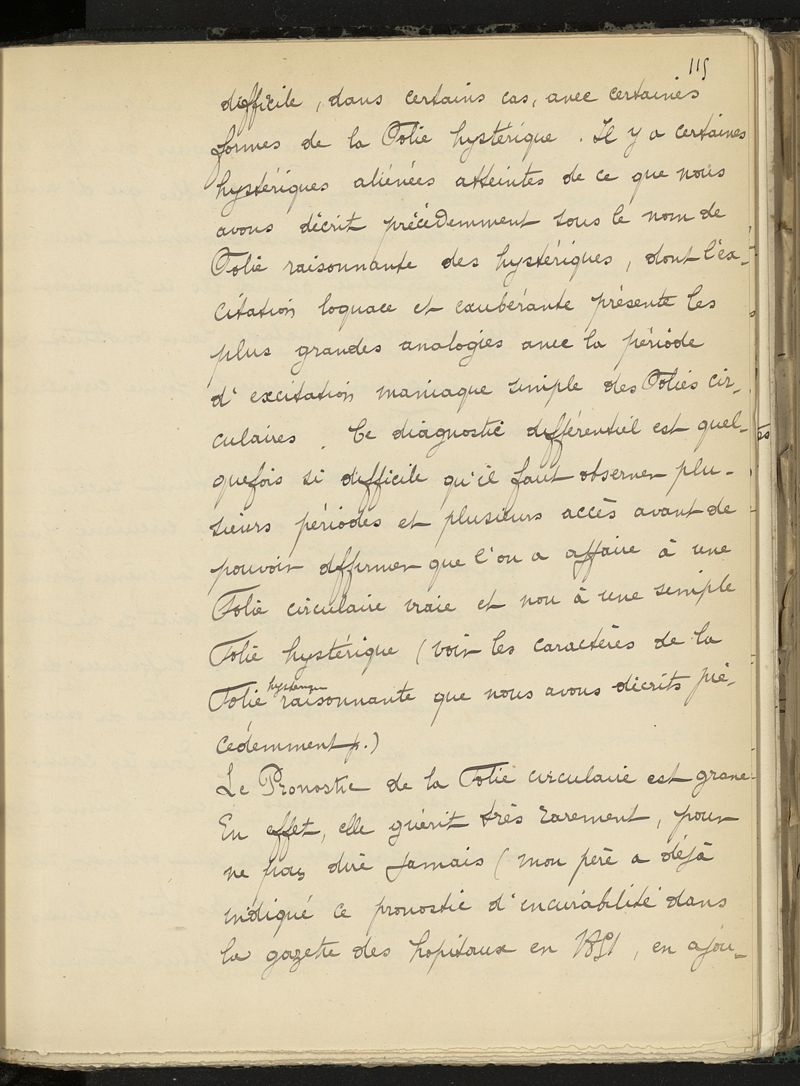 115
difficile, dans certains cas, avec certaines
formes de la Folie hystérique. Il y a certaines
hystériques aliénées atteintes de ce que nous
avons décrit précédemment sous le nom de
Folie raisonnante des hystériques, dont l'ex-
citation loquace et exubérante présente les
plus grandes analogies avec la période
d'excitation maniaque simple des Folies cir-
culaires. Ce diagnostic différentiel est quel-
quefois si difficile qu'il faut observer plu-
sieurs périodes et plusieurs accès avant de
pouvoir affirmer que l'on a affaire à une
Folie circulaire vraie et non à une simple
Folie hystérique (voir les caractères de la
hystérique
Folie raisonnante que nous avons décrits pré-
cédemment p.)
Le Pronostic de la Folie circulaire est grave
En effet, elle guérit très rarement, pour
ne pas dire jamais (mon père a déjà
indiqué ce pronostic d'incurabilité dans
la gazette des hopitaux en 1851, en ajou-